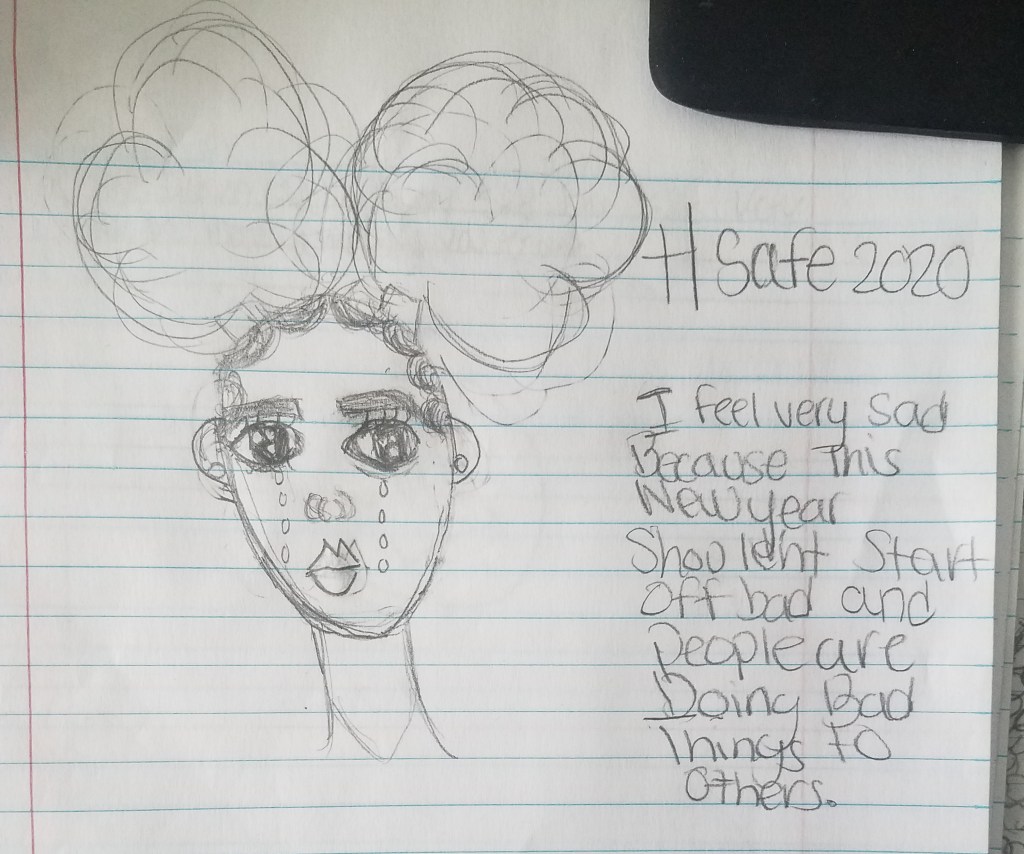 H Safe 2020
I feel very Sad
Because This
New year
Shoulent Start
Off bad and
people are
Doing Bad
Things to
Others.